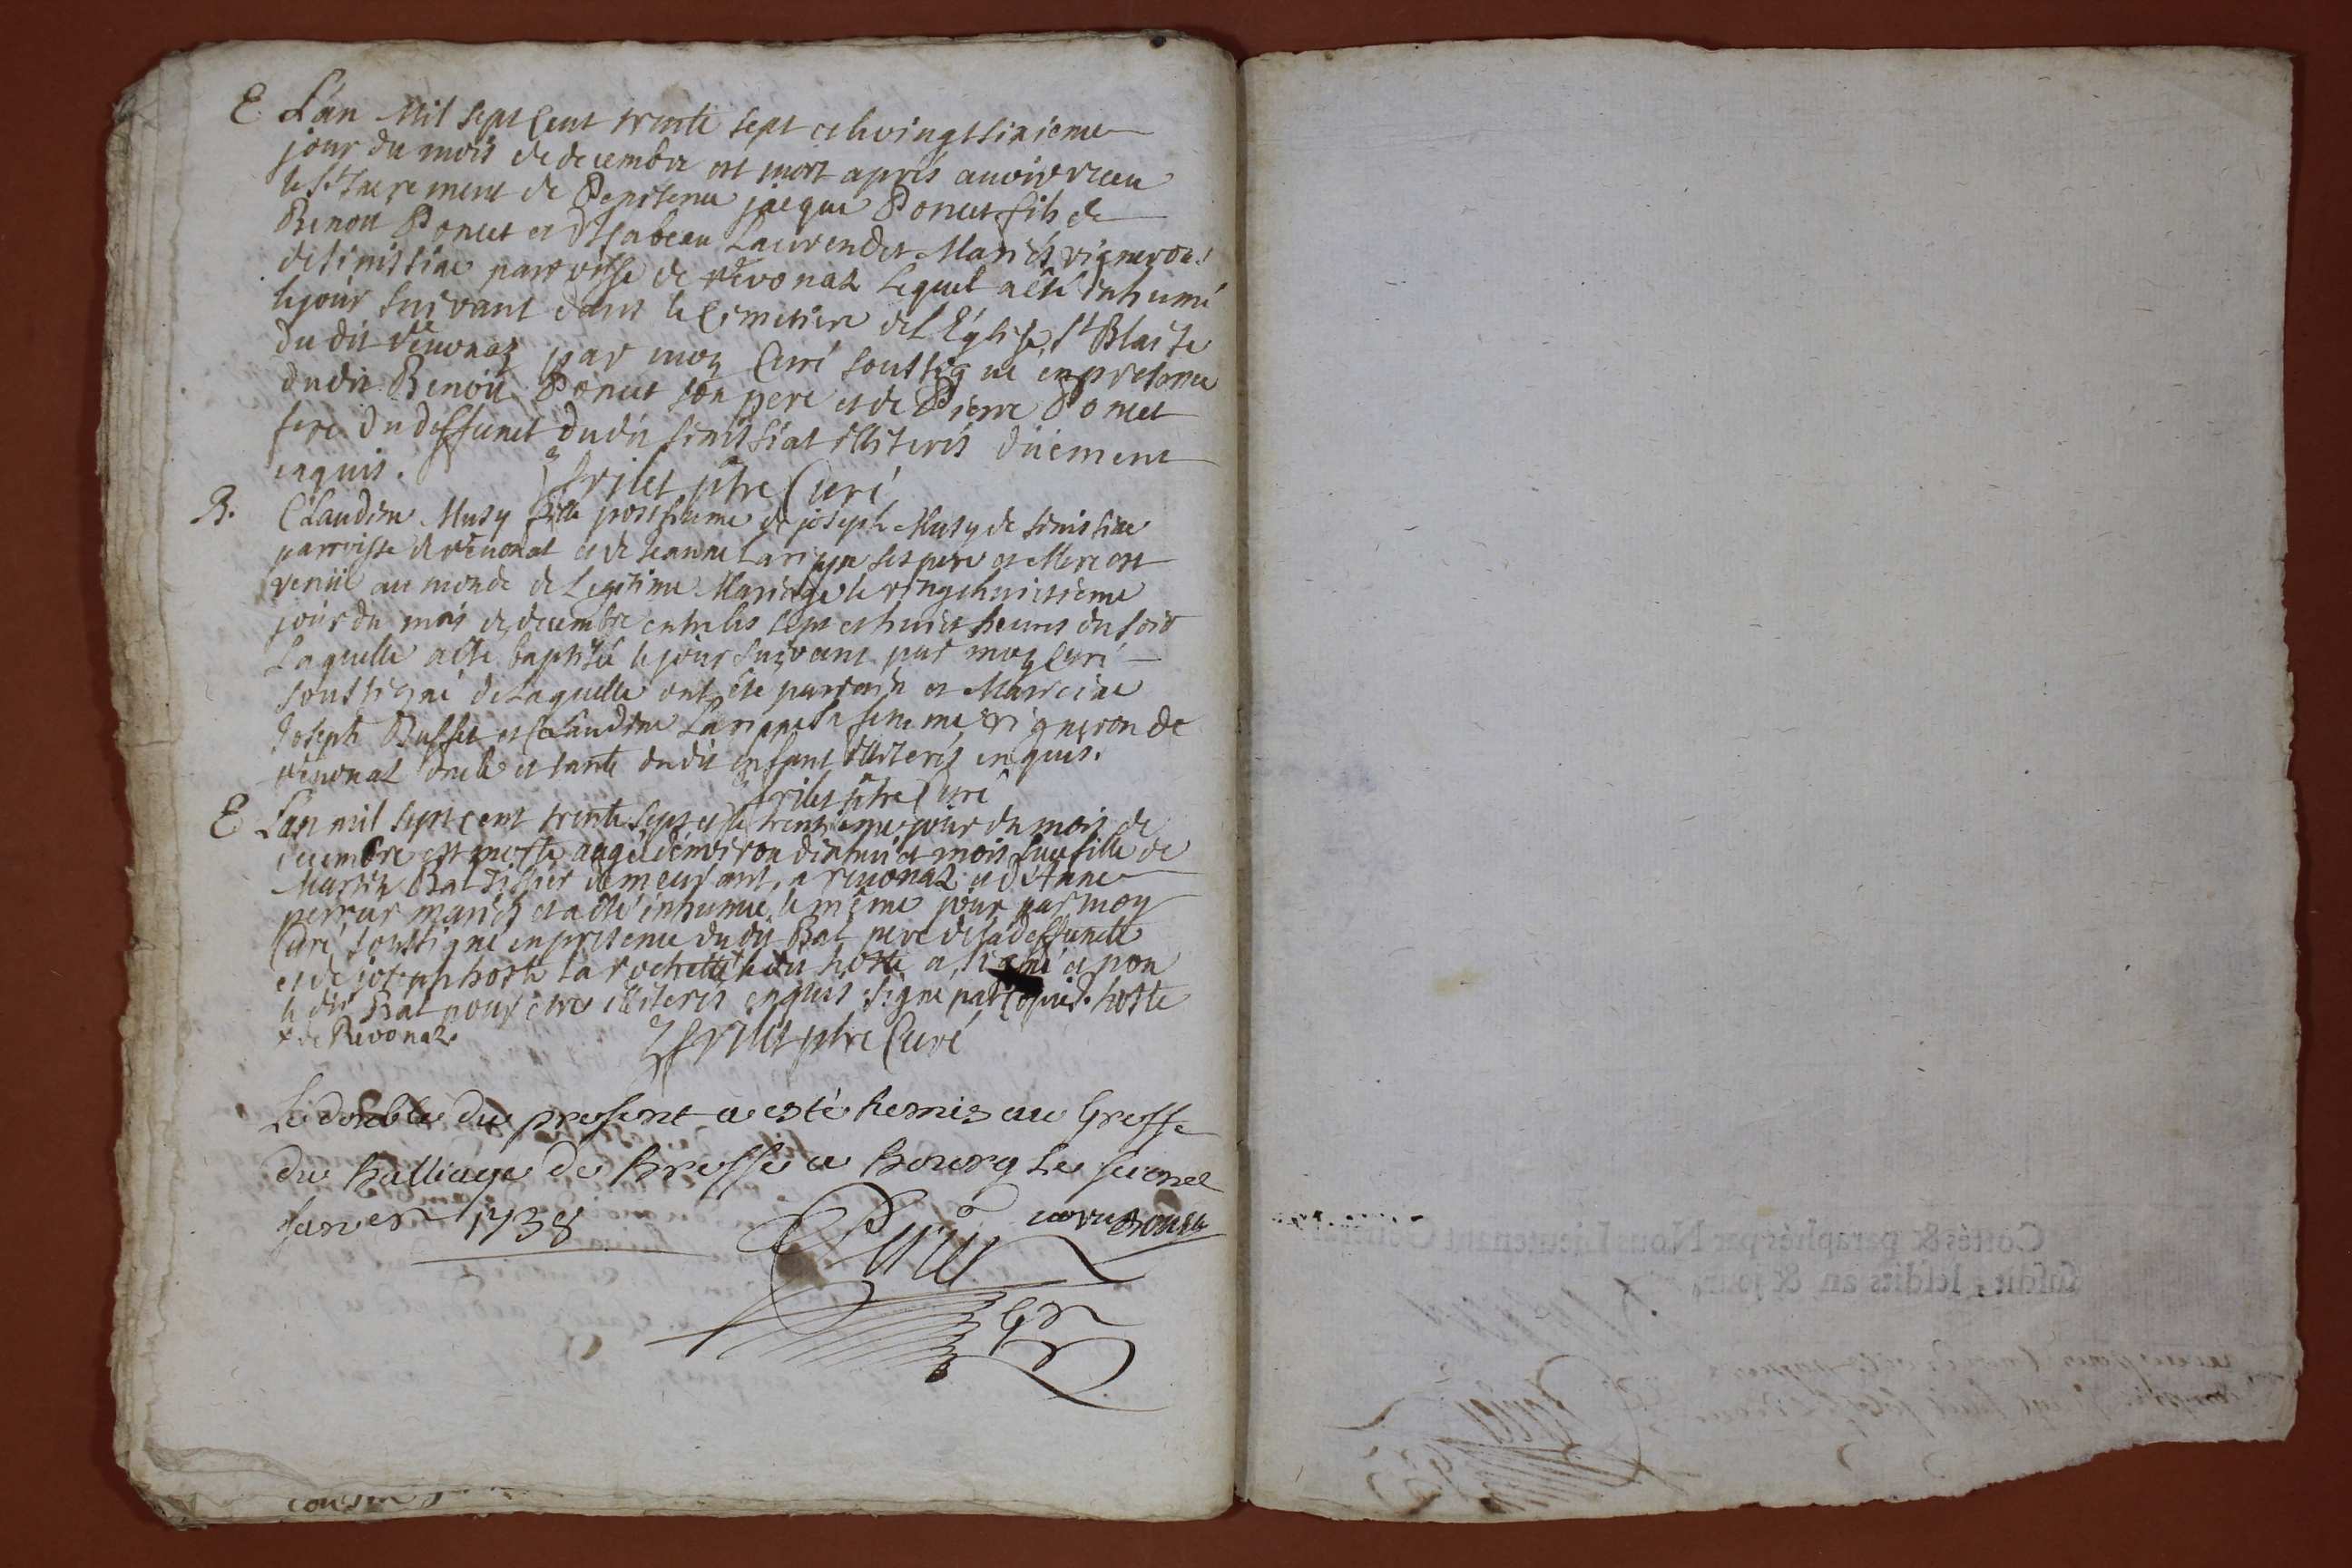 E. L'an Mil sept Cent trente sept et le vingt sixieme
jour du mois de decembre est mort aprés auvoir receu
le St Sacrement de Penitence jacque Poncet fils de
Benoit Poncet et d'Isabeau Laurendet Mariés vignerons
de Sinissiat parroisse de révonaz Lequel a été inhumé
le jour suivant dans le Cimetiere de L'Eglise St Blaise
du dit révonaz par moy Curé soussigné en presence
dudit Benoit Poncet son pere et de Pierre Poncet
frere du deffunct dudit Sinissiat illiterés düement
enquis. Frilet ptre Curé
B. Claudine Musy fille posthume de joseph Musy de Sinissiat
parroisse de révonat et de Jeanne Larippe ses pere et Mere est
venüe au monde de Legitime Mariage le vingt huictieme
jour du mois de decembre entre les sept et huict heures du soir
Laquelle a été baptisée le jour suivant par moy Curé
soussigné de Laquelle ont été parrein et Marreine
Joseph Buffet et Claudine Larippe sa femme vigneron de
révonaz oncle et tante dudit enfant illiterés enquis.
Frilet ptre Curé
E L'an mil sept cent trente sept et le trentieme jour du mois de
decembre est morte augée d'environ dixhuict mois fille de
Martin Bal tissier demeurant a revonaz et d'Anne
perrur mariés et a été inhumée le même jour par moy
Curé soussigné en presence dudit Bal pere de la deffuncte
et de joseph hoste La rochette + ledit hoste a signé et non
le dit Bal pour être illiterés enquis. signé par Copie J. hoste
+ de Revonaz. Frilet ptre Curé
Le double du present a esté Remis au Greffe
du Balliage de Bresse a Bourg Le second
Janvier 1738
Gr
Cottés & paraphés par Nous Lieutenant General
susdit, lesdits an & jour,